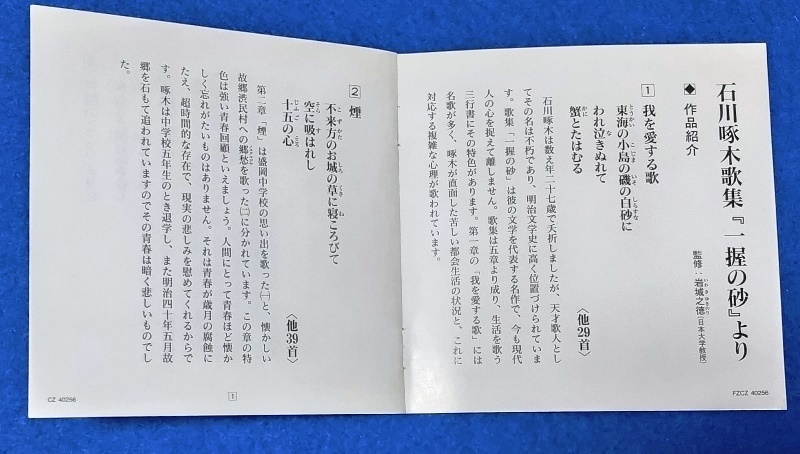 石川啄木歌集『一握の砂』より
監修:岩城之徳(日本大学教授)
◆作品紹介
1 我を愛する歌
東海の小島の磯の白砂に
われ泣きぬれて
蟹とたはむる
〈他29首〉
石川啄木は数え年二十七歳で夭折しましたが、天才歌人とし
てその名は不朽であり、明治文学史に高く位置づけられていま
す。歌集「一握の砂」は彼の文学を代表する名作で、今も現代
人の心を捉えて離しません。歌集は五章より成り、生活を歌う
三行書にその特色があります。第一章の「我を愛する歌」には
名歌が多く、啄木が直面した苦しい都会生活の状況と、これに
対応する複雑な心理が歌われています。
FZCZ 40256
2 煙
不来方のお城の草に寝ころびて
空に吸はれし
十五の心
〈他39首〉
第二章「煙」は盛岡中学校の思い出を歌った㈠と、懐かしい
故郷渋民村への郷愁を歌った㈡に分かれています。この章の特
色は強い青春回顧といえましょう。人間にとって青春ほど懐か
しく忘れがたいものはありません。それは青春が歳月の腐蝕に
たえ、超時間的な存在で、現実の悲しみを慰めてくれるからで
す。啄木は中学校五年生のとき退学し、また明治四十年五月故
郷を石もて追われていますのでその青春は暗く悲しいものでし
た。
1
CZ 40256